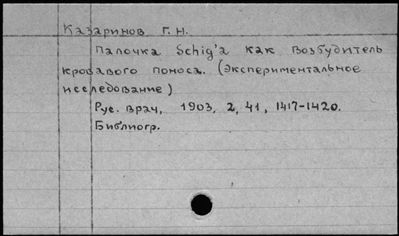 Казаринов Г. Н.
Палочка Schig'a как возбудитель
кровавого поноса. (Экспериментальное
исследование)
Рус. врач, 1903, 2, 41, 1417-1420.
Библиогр.